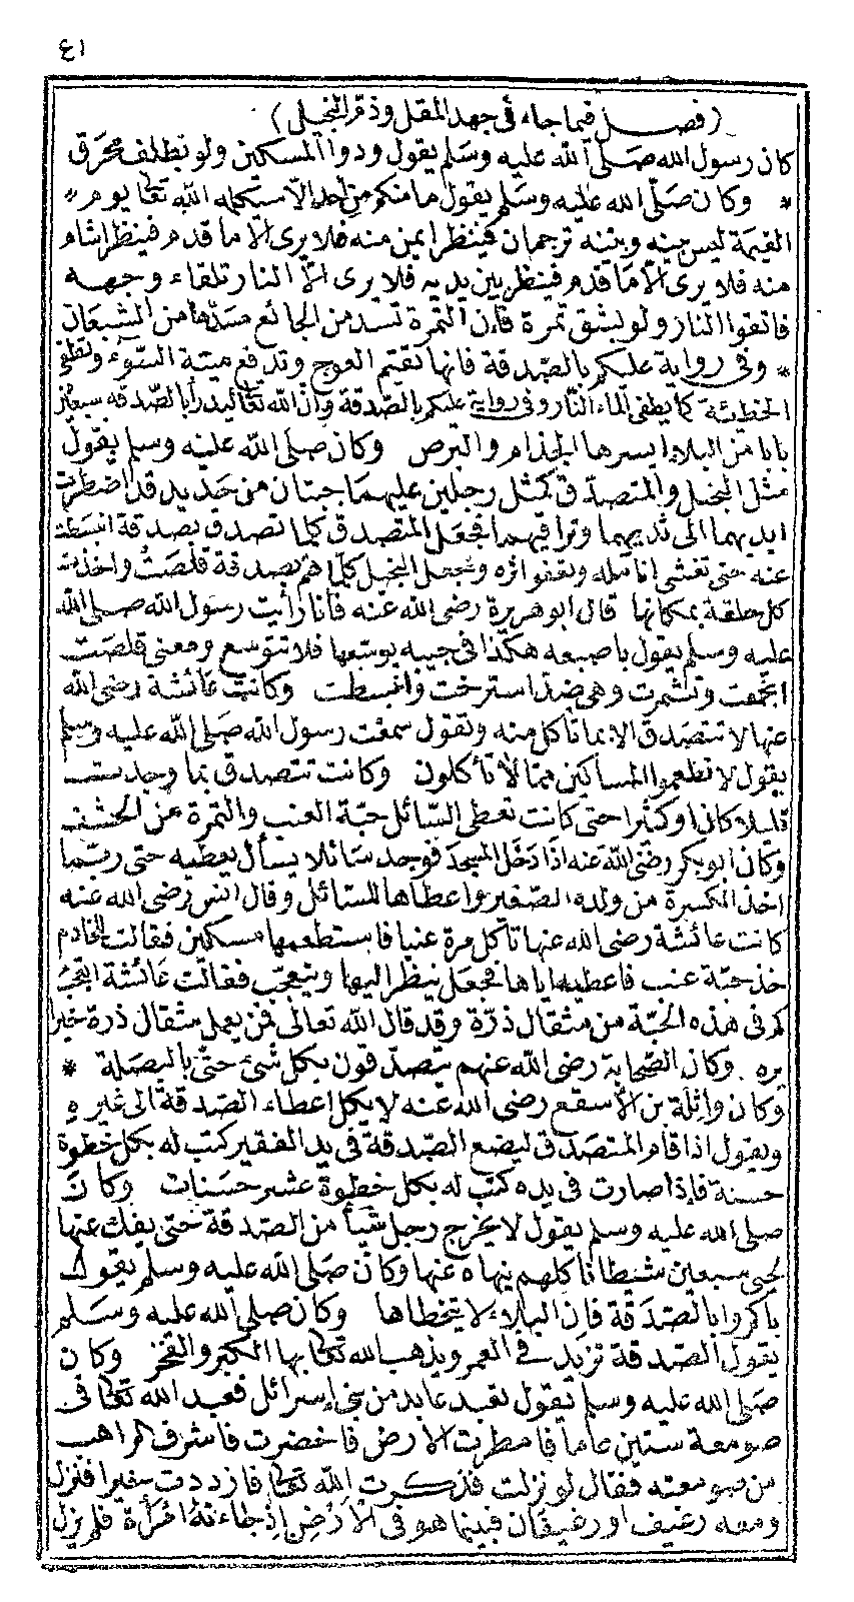 ٤١
(فصل فيما جاء في جهد المقل وذم البخيل)
كان رسول الله صلى الله عليه وسلم يقول ردوا المسكين ولو بظلف محرق
* وكان صلى الله عليه وسلم يقول ما منكم من أحد الا سيكلمه الله تعالى يوم *
القيمة ليس بينه وبينه ترجمان فينظر ايمن منه فلا يرى الا ما قدم فينظر اشام
منه فلا يرى الا ما قدم فينظر بين يديه فلا يرى الا النار تلقاء وجهه
فاتقوا النار ولو بشق تمرة فان التمرة تسد من الجائع مسدها من الشبعان
* وفي رواية عليكم بالصدقة فانها تقيم العوج وتدفع ميتة السوء وتطفي
الخطيئة كما يطفي الماء النار وفي رواية عليكم بالصدقة وان الله تعالى ليدرأ بالصدقة سبعين
بابا من البلاء ايسرها الجذام والبرص وكان صلى الله عليه وسلم يقول
مثل البخيل والمتصدق كمثل رجلين عليهما جبتان من حديد قد اضطرت
ايديهما الى ثدييهما وتراقيهما فجعل المتصدق كلما تصدق بصدقة انبسطت
عنه حتى تغشى انامله وتقفو اثره وجعل البخيل كلما هم بصدقة قلصت واخذت
كل حلقة بمكانها قال ابو هريرة رضى الله عنه فانا رأيت رسول الله صلى الله
عليه وسلم يقول باصبعه هكذا في جيبه يوسعها فلا تتوسع ومعنى قلصت
اجتمعت وتشمرت وهى ضد استرخت وانبسطت وكانت عائشة رضى الله
عنها لا تتصدق الا بما تأكل منه وتقول سمعت رسول الله صلى الله عليه وسلم
يقول لا تطعموا المساكين مما لا تأكلون وكانت تتصدق بما وجدت
قليلا كان او كثيرا حتى كانت تعطى السائل حبة العنب والتمرة عن الحشف
وكان ابو بكر رضى الله عنه اذا دخل المسجد فوجد سائلا يسأل يعطيه حتى ربما
اخذ الكسرة من ولده الصغير واعطاها للسائل وقال انس رضى الله عنه
كانت عائشة رضى الله عنها تأكل مرة عنبا فاستطعمها مسكين فقالت للخادم
خذ حبة عنب فاعطيه اياها فجعل ينظر اليها ويتعجب فقالت عائشة اتعجب
كم في هذه الحبة من مثقال ذرة وقد قال الله تعالى فمن يعمل مثقال ذرة خيرا
يره وكان الصحابة رضى الله عنهم يتصدقون بكل شئ حتى بالبصلة *
وكان واثلة بن الأسقع رضى الله عنه لا يكل اعطاء الصدقة الى غيره
ويقول اذا قام المتصدق ليضع الصدقة في يد الفقير كتب له بكل خطوة
حسنة فاذا صارت في يده كتب له بكل خطوة عشر حسنات وكان
صلى الله عليه وسلم يقول لا يخرج رجل شيأ من الصدقة حتى يفك عنها
لحيى سبعين شيطانا كلهم ينهاه عنها وكان صلى الله عليه وسلم يقول
باكروا بالصدقة فان البلاء لا يتخطاها وكان صلى الله عليه وسلم
يقول الصدقة تزيد في العمر ويذهب الله تعالى بها الكبر والفخر وكان
صلى الله عليه وسلم يقول تعبد عابد من بني إسرائل فعبد الله تعالى في
صومعة ستين عاما فامطرت الارض فاخضرت فاشرف الراهب
من صومعته فقال لو نزلت فذكرت الله تعالى فازددت خيرا فنزل
ومعه رغيف او رغيفان فبينما هو في الارض إذ جاءته امرأة فلم يزل